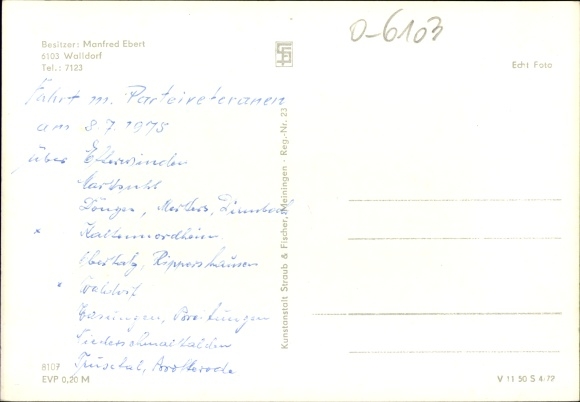 O-6103
Besitzer: Manfred Ebert
6103 Walldorf
Tel.: 7123
Echt Foto
Fahrt m. Parteiveteranen
am 8.7.1975
über Etterwinden
Marksuhl
Dönges, Merkers, Dermbach
x Kaltennordheim
Oberkatz, Rippershausen
x Walldorf
Wasungen, Breitungen
Niederschmalkalden
Trusetal, Brotterode
Kunstanstalt Straub & Fischer, Meiningen - Reg.-Nr. 23
8107
EVP 0,20 M
V 11 50 S 4-72